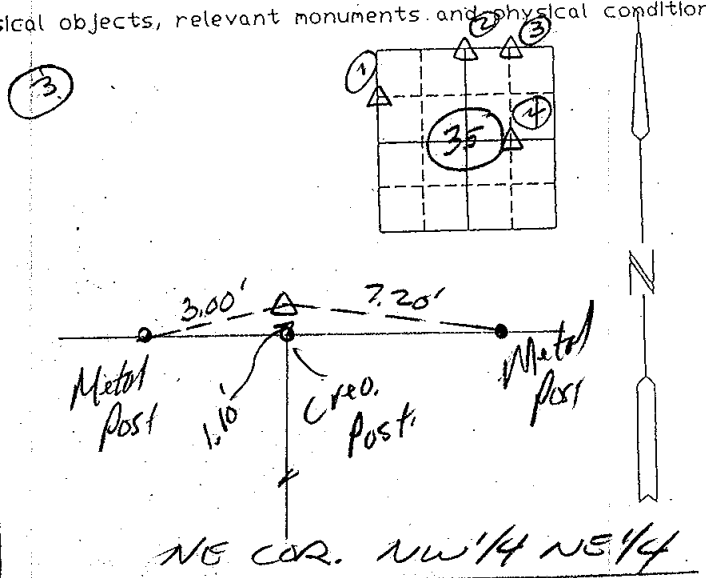 sical objects, relevant monuments and physical condition
3
1
2
3
4
35
N
3.00'
7.20'
1.10'
Metal
Post
Creo.
Post.
Metal
Post
NE COR. NW 1/4 NE 1/4